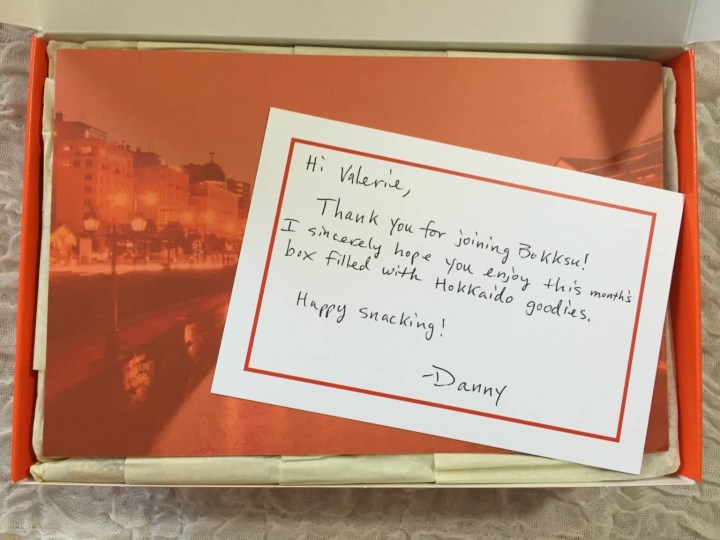 Hi Valerie,
Thank you for joining Bokksu!
I sincerely hope you enjoy this month's
box filled with Hokkaido goodies.
Happy snacking!
-Danny